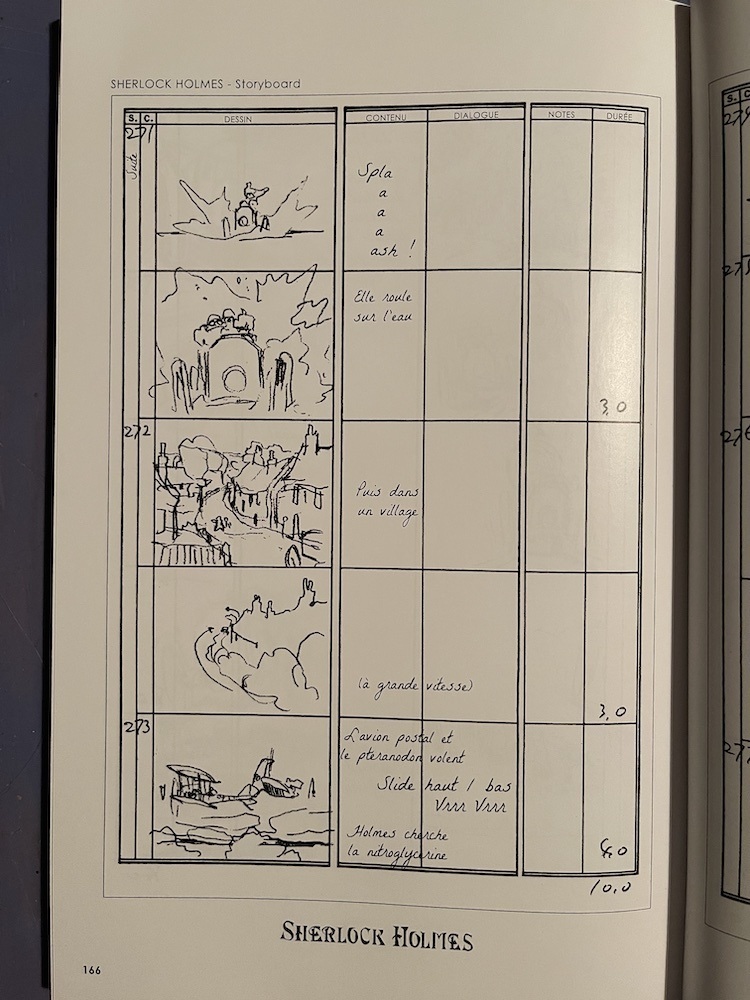 SHERLOCK HOLMES - Storyboard
S. C. DESSIN CONTENU DIALOGUE NOTES DURÉE
271
Suite
Spla
a
a
a
ash !
Elle roule
sur l'eau
3,0
272
Puis dans
un village
(à grande vitesse)
3,0
273
L'avion postal et
le pteranodon volent
Slide haut / bas
Vrrr Vrrr
Holmes cherche
la nitroglycérine
4,0
10,0
SHERLOCK HOLMES
166
S. C
275
276
277